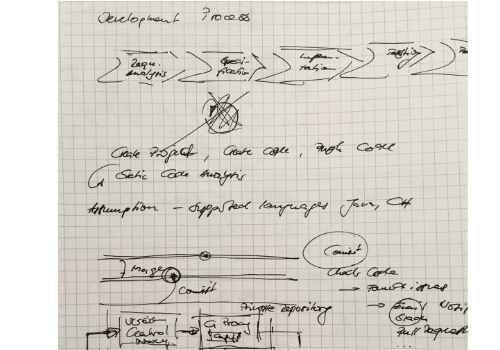 Development Process
Requ. Analysis
Speci- fication
Imple- mentation
Testing
Create Project, Create Code, Push Code
Static Code Analysis
Assumption - Supported languages Java, C#
Merge
Commit
Commit
Check Code
→ Functional
→ Email
Private Repository
Version Control
CI Proxy
Pull Request
...